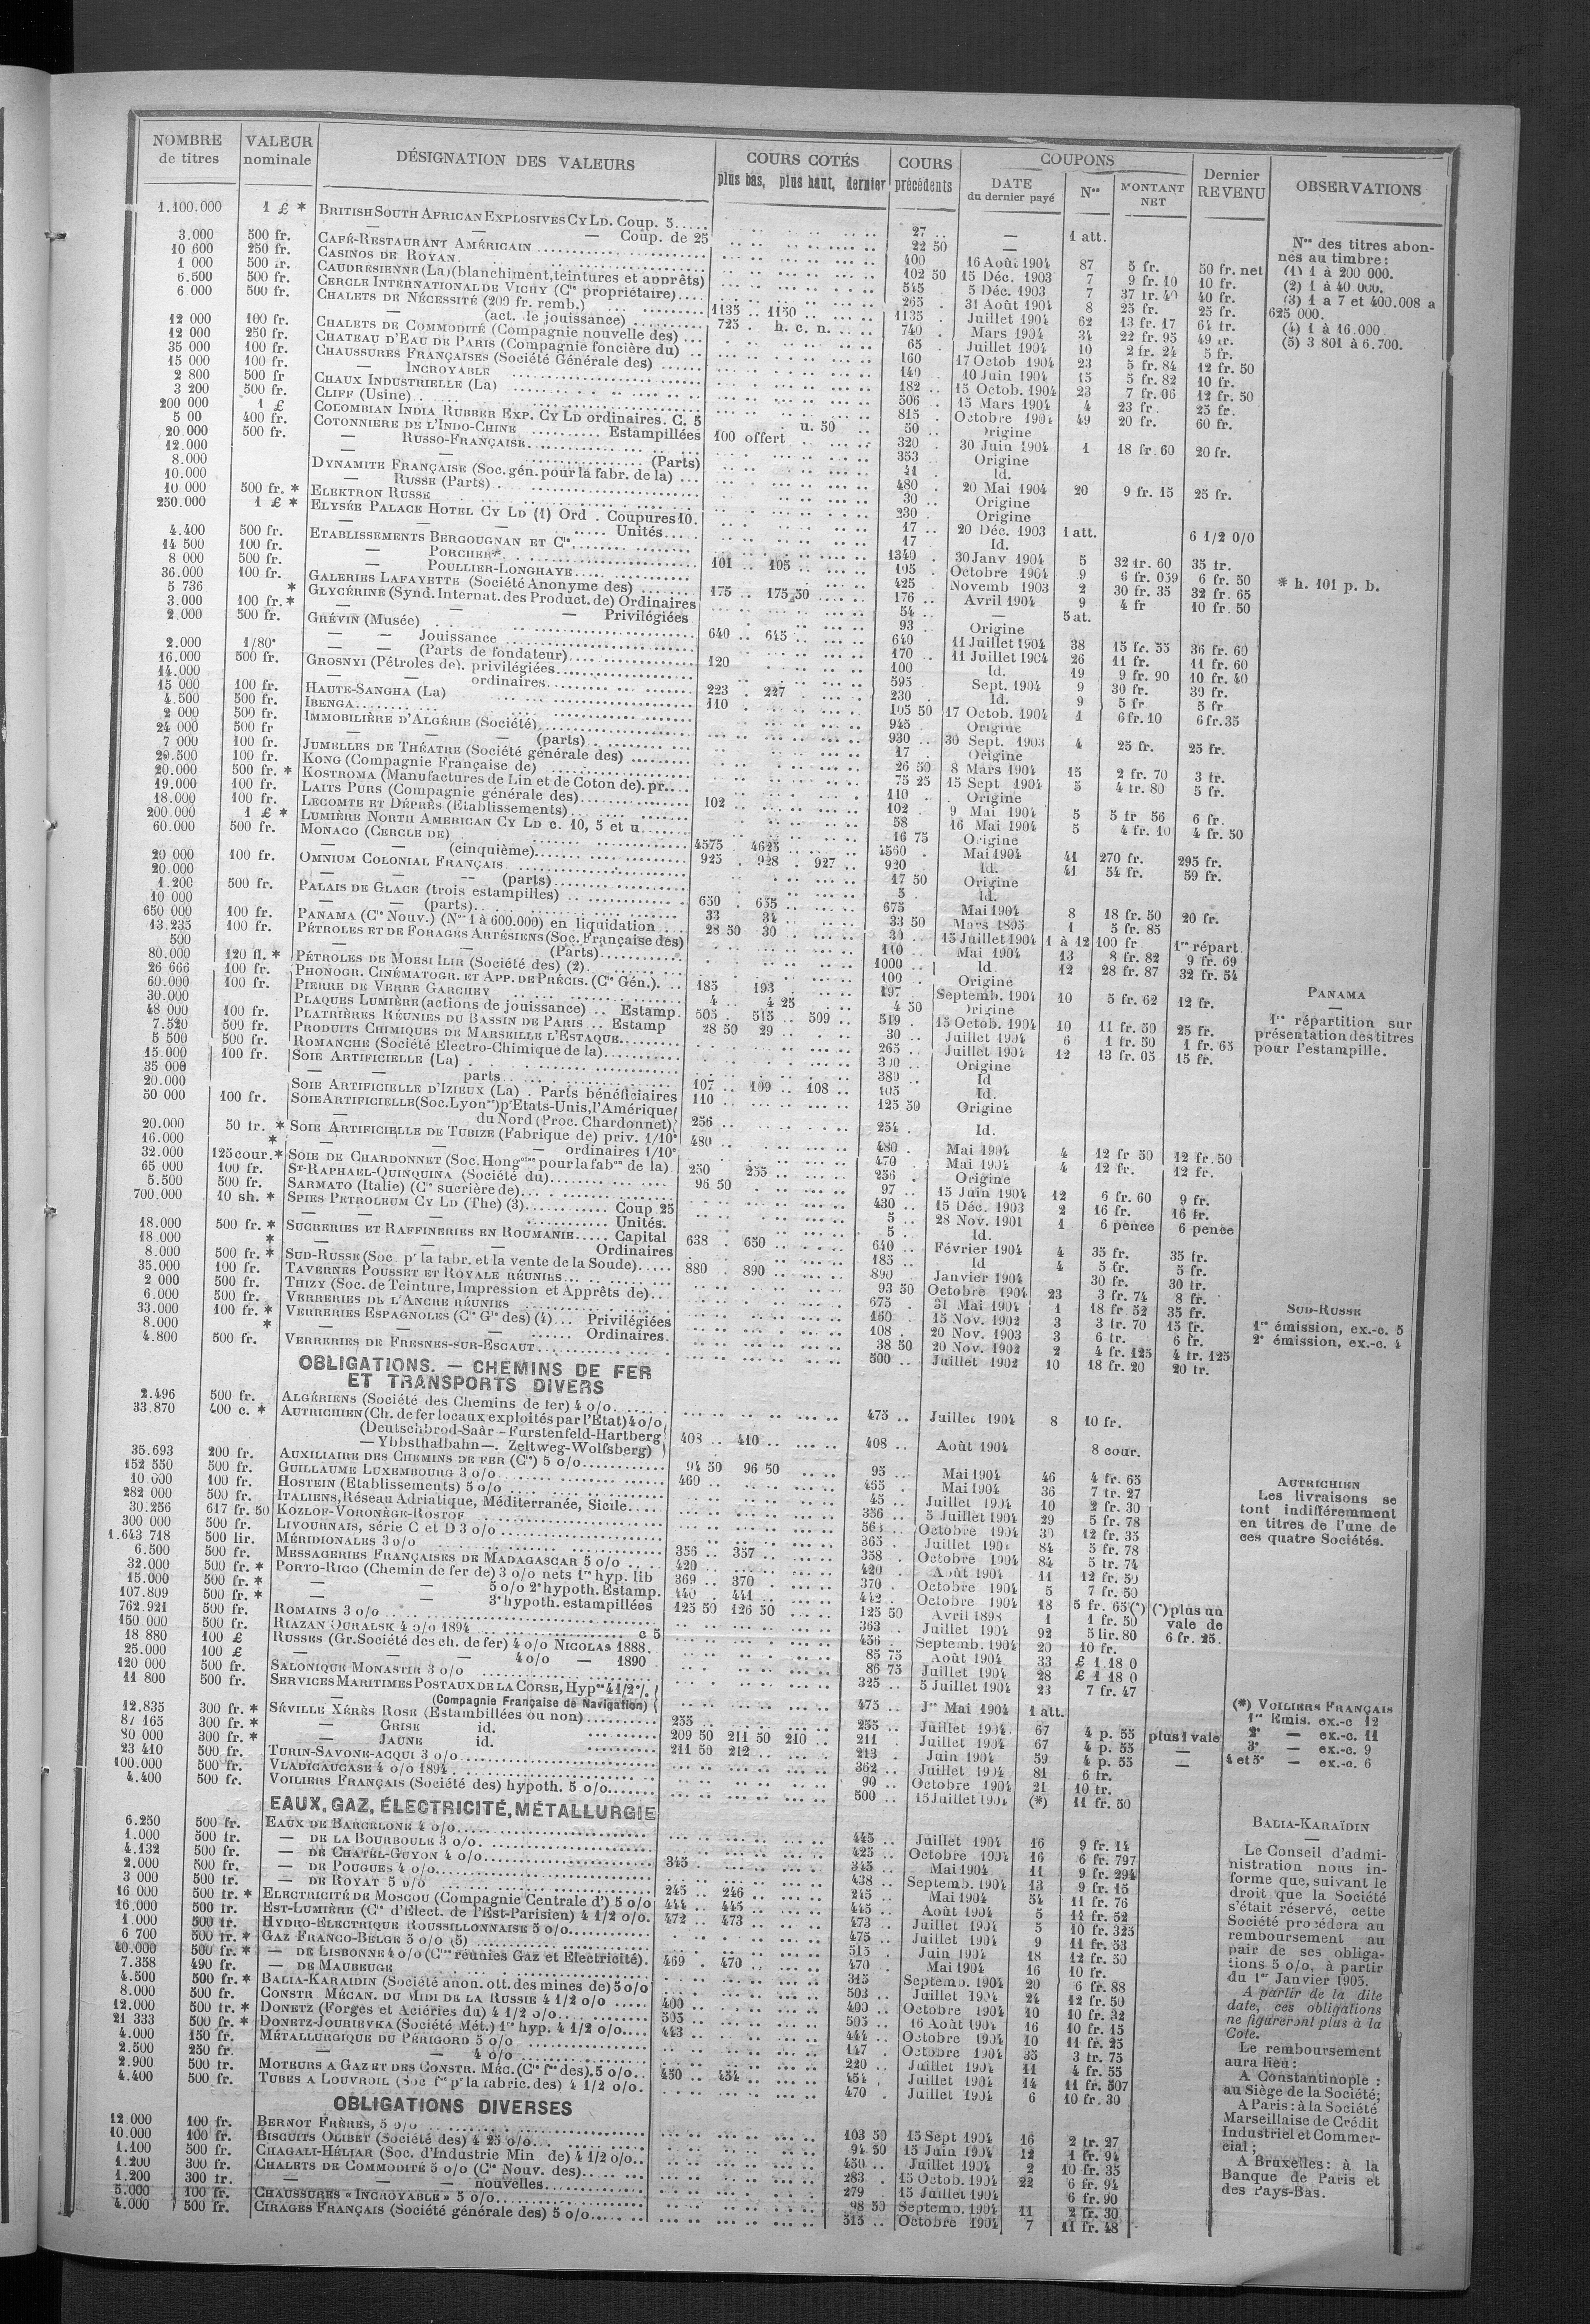 NOMBRE de titres | VALEUR nominale | DÉSIGNATION DES VALEURS | COURS COTÉS plus bas, plus haut, dernier | COURS précédents | COUPONS DATE du dernier payé | Nos | MONTANT NET | Dernier REVENU | OBSERVATIONS
1.100.000 1 £ * BRITISH SOUTH AFRICAN EXPLOSIVES CY LD. Coup. 5..... 27 .. — 1 att.
— — — Coup. de 25 22 50 —
3.000 500 fr. CAFÉ-RESTAURANT AMÉRICAIN 400 16 Août 1904 87 5 fr. 50 fr. net
10 600 250 fr. CASINOS DE ROYAN. 102 50 15 Déc. 1903 7 9 fr. 10 10 fr.
1 000 500 fr. CAUDRESIENNE (La) (blanchiment, teintures et apprêts) 545 5 Déc. 1903 7 37 fr. 40 40 fr.
6.500 500 fr. CERCLE INTERNATIONAL DE VICHY (Cie propriétaire).... 265 31 Août 1904 8 25 fr. 25 fr.
6 000 500 fr. CHALETS DE NÉCESSITÉ (200 fr. remb.) 1135 .. 1150 1135 Juillet 1904 62 13 fr. 17 64 fr.
— (act. de jouissance) 725 . h. c. n. 740 Mars 1904 34 22 fr. 95 49 fr.
12 000 100 fr. CHALETS DE COMMODITÉ (Compagnie nouvelle des) ... 65 Juillet 1904 10 2 fr. 24 5 fr.
12 000 250 fr. CHATEAU D'EAU DE PARIS (Compagnie foncière du) .. 160 17 Octob 1904 23 5 fr. 84 12 fr. 50
35 000 100 fr. CHAUSSURES FRANÇAISES (Société Générale des) ...... 140 10 Juin 1904 15 5 fr. 82 10 fr.
15 000 100 fr. — INCROYABLE 182 .. 15 Octob. 1904 23 7 fr. 06 12 fr. 50
2 800 500 fr CHAUX INDUSTRIELLE (La) 506 . 15 Mars 1904 4 23 fr. 25 fr.
3 200 500 fr. CLIFF (Usine) 815 . Octobre 1904 49 20 fr. 60 fr.
200 000 1 £ COLOMBIAN INDIA RUBBER EXP. CY LD ordinaires. C. 5 u. 50 50 .. Origine
5 00 400 fr. COTONNIERE DE L'INDO-CHINE .......... Estampillées 100 offert 320 30 Juin 1904 1 18 fr. 60 20 fr.
20.000 500 fr. — RUSSO-FRANÇAISE.. 353 Origine
12.000 — — (Parts) 41 Id.
8.000 DYNAMITE FRANÇAISE (Soc. gén. pour la fabr. de la) ... 480 20 Mai 1904 20 9 fr. 15 25 fr.
10.000 — RUSSE (Parts) 30 .. Origine
10 000 500 fr. * ELEKTRON RUSSE 230 Origine
250.000 1 £ * ELYSÉE PALACE HOTEL CY LD (1) Ord . Coupures 10. 17 .. 20 Déc. 1903 1 att. 6 1/2 0/0
— — — Unités.... 17 Id.
4.400 500 fr. ETABLISSEMENTS BERGOUGNAN ET Cie. 1340 . 30 Janv 1904 5 32 fr. 60 35 fr.
14 500 100 fr. — PORCHER*. 101 .. 105 105 .. Octobre 1904 9 6 fr. 059 6 fr. 50 * h. 101 p. b.
8 000 500 fr. — POULLIER-LONGHAYE 425 Novemb 1903 2 30 fr. 35 32 fr. 65
36.000 100 fr. GALERIES LAFAYETTE (Société Anonyme des) 175 .. 175 50 176 .. Avril 1904 9 4 fr 10 fr. 50
5 736 * GLYCÉRINE (Synd. Internat. des Product. de) Ordinaires 54 .. — 5 at.
3.000 100 fr. * — — Privilégiées 93 .. Origine
2.000 500 fr. GRÉVIN (Musée) 640 .. 645 640 11 Juillet 1904 38 15 fr. 35 36 fr. 60
— — Jouissance 170 11 Juillet 1904 26 11 fr. 11 fr. 60
2.000 1/80e — — (Parts de fondateur) 100 Id. 19 9 fr. 90 10 fr. 40
16.000 500 fr. GROSNYI (Pétroles de). privilégiées 120 595 Sept. 1904 9 30 fr. 30 fr.
14.000 — — ordinaires 230 Id. 9 5 fr 5 fr
15 000 100 fr. HAUTE-SANGHA (La) 223 . 227 105 50 17 Octob. 1904 1 6 fr. 10 6 fr. 35
4.500 500 fr. IBENGA 110 945 Origine
2 000 500 fr. IMMOBILIÈRE D'ALGÉRIE (Société) 930 .. 30 Sept. 1903 4 25 fr. 25 fr.
24 000 500 fr — — (parts) 17 Origine
7 000 100 fr. JUMELLES DE THÉATRE (Société générale des) 26 50 8 Mars 1904 15 2 fr. 70 3 fr.
29.500 100 fr. KONG (Compagnie Française de) 75 25 15 Sept 1904 5 4 fr. 80 5 fr.
20.000 500 fr. * KOSTROMA (Manufactures de Lin et de Coton de). pr. 110 Origine
19.000 100 fr. LAITS PURS (Compagnie générale des) 102 102 9 Mai 1904 5 5 fr 56 6 fr.
18.000 100 fr. LECOMTE ET DÉPRÈS (Etablissements) 58 16 Mai 1904 5 4 fr. 10 4 fr. 50
200.000 1 £ * LUMIÈRE NORTH AMERICAN CY LD c. 10, 5 et u. 16 75 Origine
60.000 500 fr. MONACO (CERCLE DE) 4575 4625 4560 Mai 1904 41 270 fr. 295 fr.
— (cinquième) 925 . 928 . 927 .. 920 Id. 41 54 fr. 59 fr.
20 000 100 fr. OMNIUM COLONIAL FRANÇAIS 17 50 Origine
20.000 — — (parts) 5 Id.
1.200 500 fr. PALAIS DE GLACE (trois estampilles) 650 . 655 675 Mai 1904 8 18 fr. 50 20 fr.
10 000 — — (parts) 33 34 33 50 Mars 1895 1 5 fr. 85
650 000 100 fr. PANAMA (Cie Nouv.) (Nos 1 à 600.000) en liquidation 28 50 30 30 15 Juillet 1904 1 à 12 100 fr 1re répart.
13.235 100 fr. PÉTROLES ET DE FORAGES ARTÉSIENS (Soc. Française des) 110 Mai 1904 13 8 fr. 82 9 fr. 69
500 — — (Parts) 1000 Id. 12 28 fr. 87 32 fr. 54
80.000 120 fl. * PÉTROLES DE MOESI ILIR (Société des) (2) 100 Origine
26 666 100 fr. PHONOGR. CINÉMATOGR. ET APP. DE PRÉCIS. (Cie Gén.). 185 193 197 Septemb. 1904 10 5 fr. 62 12 fr.
60.000 100 fr. PIERRE DE VERRE GARCHEY 4 .. 4 25 4 50 Origine
30.000 PLAQUES LUMIÈRE (actions de jouissance) .. Estamp. 505 .. 515 .. 509 519 15 Octob. 1904 10 11 fr. 50 25 fr.
48 000 100 fr. PLATRIÈRES RÉUNIES DU BASSIN DE PARIS .. Estamp 28 50 29 30 Juillet 1904 6 1 fr. 50 1 fr. 65
7.520 500 fr. PRODUITS CHIMIQUES DE MARSEILLE L'ESTAQUE 265 Juillet 1904 12 13 fr. 05 15 fr.
5 500 500 fr. ROMANCHE (Société Electro-Chimique de la) 300 Origine
15.000 100 fr. SOIE ARTIFICIELLE (La) 380 Id
35 000 — parts 107 .. 109 .. 108 105 Id.
20.000 SOIE ARTIFICIELLE D'IZIEUX (La) . Parts bénéficiaires 110 125 50 Origine
50 000 100 fr. SOIE ARTIFICIELLE (Soc. Lyonse) pr Etats-Unis, l'Amérique
du Nord (Proc. Chardonnet) 256 254 Id.
20.000 50 fr. * SOIE ARTIFICIELLE DE TUBIZE (Fabrique de) priv. 1/10e 480 480 Mai 1904 4 12 fr 50 12 fr. 50
16.000 * — — ordinaires 1/10e 470 Mai 1904 4 12 fr. 12 fr.
32.000 125 cour. * SOIE DE CHARDONNET (Soc. Hongoise pour la fabon de la) 250 255 256 Origine
65 000 100 fr. ST-RAPHAEL-QUINQUINA (Société du) 96 50 97 15 Juin 1904 12 6 fr. 60 9 fr.
5.500 500 fr. SARMATO (Italie) (Cie sucrière de) 430 15 Déc. 1903 2 16 fr. 16 fr.
700.000 10 sh. * SPIES PETROLEUM CY LD (The) (3) Coup 25 5 .. 28 Nov. 1901 1 6 pence 6 pence
— — — Unités. 5 .. Id.
18.000 500 fr. * SUCRERIES ET RAFFINERIES EN ROUMANIE..... Capital 638 .. 650 640 .. Février 1904 4 35 fr. 35 fr.
18 000 * — — Ordinaires 185 .. Id 4 5 fr. 5 fr.
8.000 500 fr. * SUD-RUSSE (Soc pr la fabr. et la vente de la Soude) 880 .. 890 890 Janvier 1904 30 fr. 30 fr.
35.000 100 fr. TAVERNES POUSSET ET ROYALE RÉUNIES 93 50 Octobre 1904 23 3 fr. 74 8 fr.
2 000 500 fr. THIZY (Soc. de Teinture, Impression et Apprêts de) 675 31 Mai 1904 1 18 fr 52 35 fr.
6.000 500 fr. VERRERIES DE L'ANCRE RÉUNIES 160 15 Nov. 1902 3 3 fr. 70 15 fr.
33.000 100 fr. * VERRERIES ESPAGNOLES (Cie Gle des) (4)... Privilégiées 108 20 Nov. 1903 3 6 fr. 6 fr.
8.000 * — — Ordinaires. 38 50 20 Nov. 1902 2 4 fr. 125 4 fr. 125
4.800 500 fr. VERRERIES DE FRESNES-SUR-ESCAUT 500 Juillet 1902 10 18 fr. 20 20 fr.
OBLIGATIONS. — CHEMINS DE FER
ET TRANSPORTS DIVERS
2.496 500 fr. ALGÉRIENS (Société des Chemins de fer) 4 o/o 475 .. Juillet 1904 8 10 fr.
33.870 400 c. * AUTRICHIEN (Ch. de fer locaux exploités par l'Etat) 4 o/o
(Deutschbrod-Saâr – Furstenfeld-Hartberg
— Ybbsthalbahn —. Zeltweg-Wolfsberg) 408 .. 410 408 .. Août 1904 8 cour.
35.693 200 fr. AUXILIAIRE DES CHEMINS DE FER (Cie) 5 o/o 94 50 96 50 95 .. Mai 1904 46 4 fr. 65
152 550 500 fr. GUILLAUME LUXEMBOURG 3 o/o 460 455 Mai 1904 36 7 fr. 27
10.000 100 fr. HOSTEIN (Etablissements) 5 o/o 45 Juillet 1904 10 2 fr. 30
282 000 500 fr. ITALIENS, Réseau Adriatique, Méditerranée, Sicile 356 5 Juillet 1904 29 5 fr. 78
30.256 617 fr. 50 KOZLOF-VORONÈGE-ROSTOF Octobre 1904 30 12 fr. 35
300 000 500 fr. LIVOURNAIS, série C et D 3 o/o 365 Juillet 1904 84 5 fr. 78
1.643 718 500 lir. MÉRIDIONALES 3 o/o 356 .. 357 358 Octobre 1904 84 5 fr. 74
6.500 500 fr. MESSAGERIES FRANÇAISES DE MADAGASCAR 5 o/o 420 420 Août 1904 11 12 fr. 50
32.000 500 fr. * PORTO-RICO (Chemin de fer de) 3 o/o nets 1re hyp. lib 369 .. 370 370 Octobre 1904 5 7 fr. 50
15.000 500 fr. * — — 5 o/o 2e hypoth. Estamp. 440 .. 441 442 Octobre 1904 18 5 fr. 65 (*) (*) plus un
107.809 500 fr. * — — 3e hypoth. estampillées 125 50 126 50 125 50 Avril 1898 1 1 fr. 50 vale de
762.921 500 fr. ROMAINS 3 o/o 363 Juillet 1904 92 5 lir. 80 6 fr. 25.
150 000 500 fr. RIAZAN OURALSK 4 o/o 1894 c 5 456 Septemb. 1904 20 10 fr.
18 880 100 £ RUSSES (Gr. Société des ch. de fer) 4 o/o NICOLAS 1888. 85 75 Août 1904 33 £ 1 18 0
25.000 100 £ — — 4 o/o — 1890 86 75 Juillet 1904 28 £ 1 18 0
120 000 500 fr. SALONIQUE MONASTIR 3 o/o 325 5 Juillet 1904 23 7 fr. 47
11 800 500 fr. SERVICES MARITIMES POSTAUX DE LA CORSE, Hypre 4 1/2 %.
— (Compagnie Française de Navigation) 475 1er Mai 1904 1 att.
12.835 300 fr. * SÉVILLE XÉRÈS ROSE (Estambillées ou non) 255 255 Juillet 1904 67 4 p. 55 plus 1 vale
87 165 300 fr. * — GRISE id. 209 50 211 50 210 211 Juillet 1904 67 4 p. 55 —
80 000 300 fr. * — JAUNE id. 211 50 212 213 Juin 1904 59 4 p. 55 —
23 410 500 fr. TURIN-SAVONE-ACQUI 3 o/o 362 Juillet 1904 81 6 fr.
100.000 500 fr. VLADICAUCASE 4 o/o 1894 90 Octobre 1904 21 10 fr.
4.400 500 fr. VOILIERS FRANÇAIS (Société des) hypoth. 5 o/o 500 15 Juillet 1904 (*) 11 fr. 50
EAUX, GAZ, ÉLECTRICITÉ, MÉTALLURGIE
6.250 500 fr. EAUX DE BARCELONE 4 o/o 445 Juillet 1904 16 9 fr. 14
1.000 500 fr. — DE LA BOURBOULE 3 o/o. 425 Octobre 1904 16 6 fr. 797
4.132 500 fr. — DE CHATEL-GUYON 4 o/o 345 345 Mai 1904 11 9 fr. 294
2.000 500 fr. — DE POUGUES 4 o/o 438 Septemb. 1904 13 9 fr. 15
3 000 500 fr. — DE ROYAT 5 o/o 245 .. 246 245 Mai 1904 54 11 fr. 76
16 000 500 fr. * ELECTRICITÉ DE MOSCOU (Compagnie Centrale d') 5 o/o 444 .. 445 445 Août 1904 5 11 fr. 52
16.000 500 fr. EST-LUMIÈRE (Cie d'Elect. de l'Est-Parisien) 4 1/2 o/o. 472 .. 473 473 Juillet 1904 5 10 fr. 325
1.000 500 fr. HYDRO-ELECTRIQUE ROUSSILLONNAISE 5 o/o 475 Juillet 1904 9 11 fr. 53
6 700 500 fr. * GAZ FRANCO-BELGE 5 o/o (5) 515 Juin 1904 18 12 fr. 50
40.000 500 fr. * — DE LISBONNE 4 o/o (Cies réunies Gaz et Electricité). 469 . 470 470 Mai 1904 16 10 fr.
7.358 490 fr. — DE MAUBEUGE 315 Septemb. 1904 20 6 fr. 88
4.500 500 fr. * BALIA-KARAIDIN (Société anon. ott. des mines de) 5 o/o 503 Juillet 1904 24 12 fr. 50
8.000 500 fr. CONSTR MÉCAN. DU MIDI DE LA RUSSIE 4 1/2 o/o 400 400 Octobre 1904 10 10 fr. 32
12.000 500 fr. * DONETZ (Forges et Aciéries du) 4 1/2 o/o 505 505 16 Août 1904 16 10 fr. 15
21 333 500 fr. * DONETZ-JOURIEVKA (Société Mét.) 1re hyp. 4 1/2 o/o 443 444 Octobre 1904 10 11 fr. 25
4.000 150 fr. MÉTALLURGIQUE DU PÉRIGORD 5 o/o 147 Octobre 1904 35 3 fr. 75
2.500 250 fr. — — 4 o/o 220 Juillet 1904 11 4 fr. 55
2.900 500 fr. MOTEURS A GAZ ET DES CONSTR. MÉC. (Cie fse des). 5 o/o 450 .. 454 454 Juillet 1904 14 11 fr. 507
4.400 500 fr. TUBES A LOUVROIL (Soc fse pr la fabric. des) 4 1/2 o/o. 470 Juillet 1904 6 10 fr. 30
OBLIGATIONS DIVERSES
12.000 100 fr. BERNOT FRÈRES, 5 o/o 103 50 15 Sept 1904 16 2 fr. 27
10.000 100 fr. BISCUITS OLIBET (Société des) 4 25 o/o 94 50 15 Juin 1904 12 1 fr. 94
1.100 500 fr. CHAGALI-HÉLIAR (Soc. d'Industrie Min de) 4 1/2 o/o 450 Juillet 1904 2 10 fr. 35
1.200 300 fr. CHALETS DE COMMODITÉ 5 o/o (Cie Nouv. des) 283 15 Octob. 1904 22 6 fr. 94
1.200 300 fr. — — nouvelles 279 15 Juillet 1904 6 fr. 90
5.000 100 fr. CHAUSSURES « INCROYABLE » 5 o/o 98 50 Septemb. 1904 11 2 fr. 30
4.000 500 fr. CIRAGES FRANÇAIS (Société générale des) 5 o/o 515 .. Octobre 1904 7 11 fr. 48
Nos des titres abon-
nés au timbre:
(1) 1 à 200 000.
(2) 1 à 40 000.
(3) 1 a 7 et 400.008 a
625 000.
(4) 1 à 16.000
(5) 3 801 à 6.700.
PANAMA
1re répartition sur
présentation des titres
pour l'estampille.
SUD-RUSSE
1re émission, ex.-c. 5
2e émission, ex.-c. 4
AUTRICHIEN
Les livraisons se
font indifféremment
en titres de l'une de
ces quatre Sociétés.
(*) VOILIERS FRANÇAIS
1re Emis. ex.-c 12
2e — ex.-c. 11
3e — ex.-c. 9
4 et 5e — ex.-c. 6
BALIA-KARAÏDIN
Le Conseil d'admi-
nistration nous in-
forme que, suivant le
droit que la Société
s'était réservé, cette
Société procédera au
remboursement au
pair de ses obliga-
tions 5 o/o, à partir
du 1er Janvier 1905.
A partir de la dite
date, ces obligations
ne figureront plus à la
Cote.
Le remboursement
aura lieu:
A Constantinople :
au Siège de la Société;
A Paris: à la Société
Marseillaise de Crédit
Industriel et Commer-
cial;
A Bruxelles: à la
Banque de Paris et
des Pays-Bas.